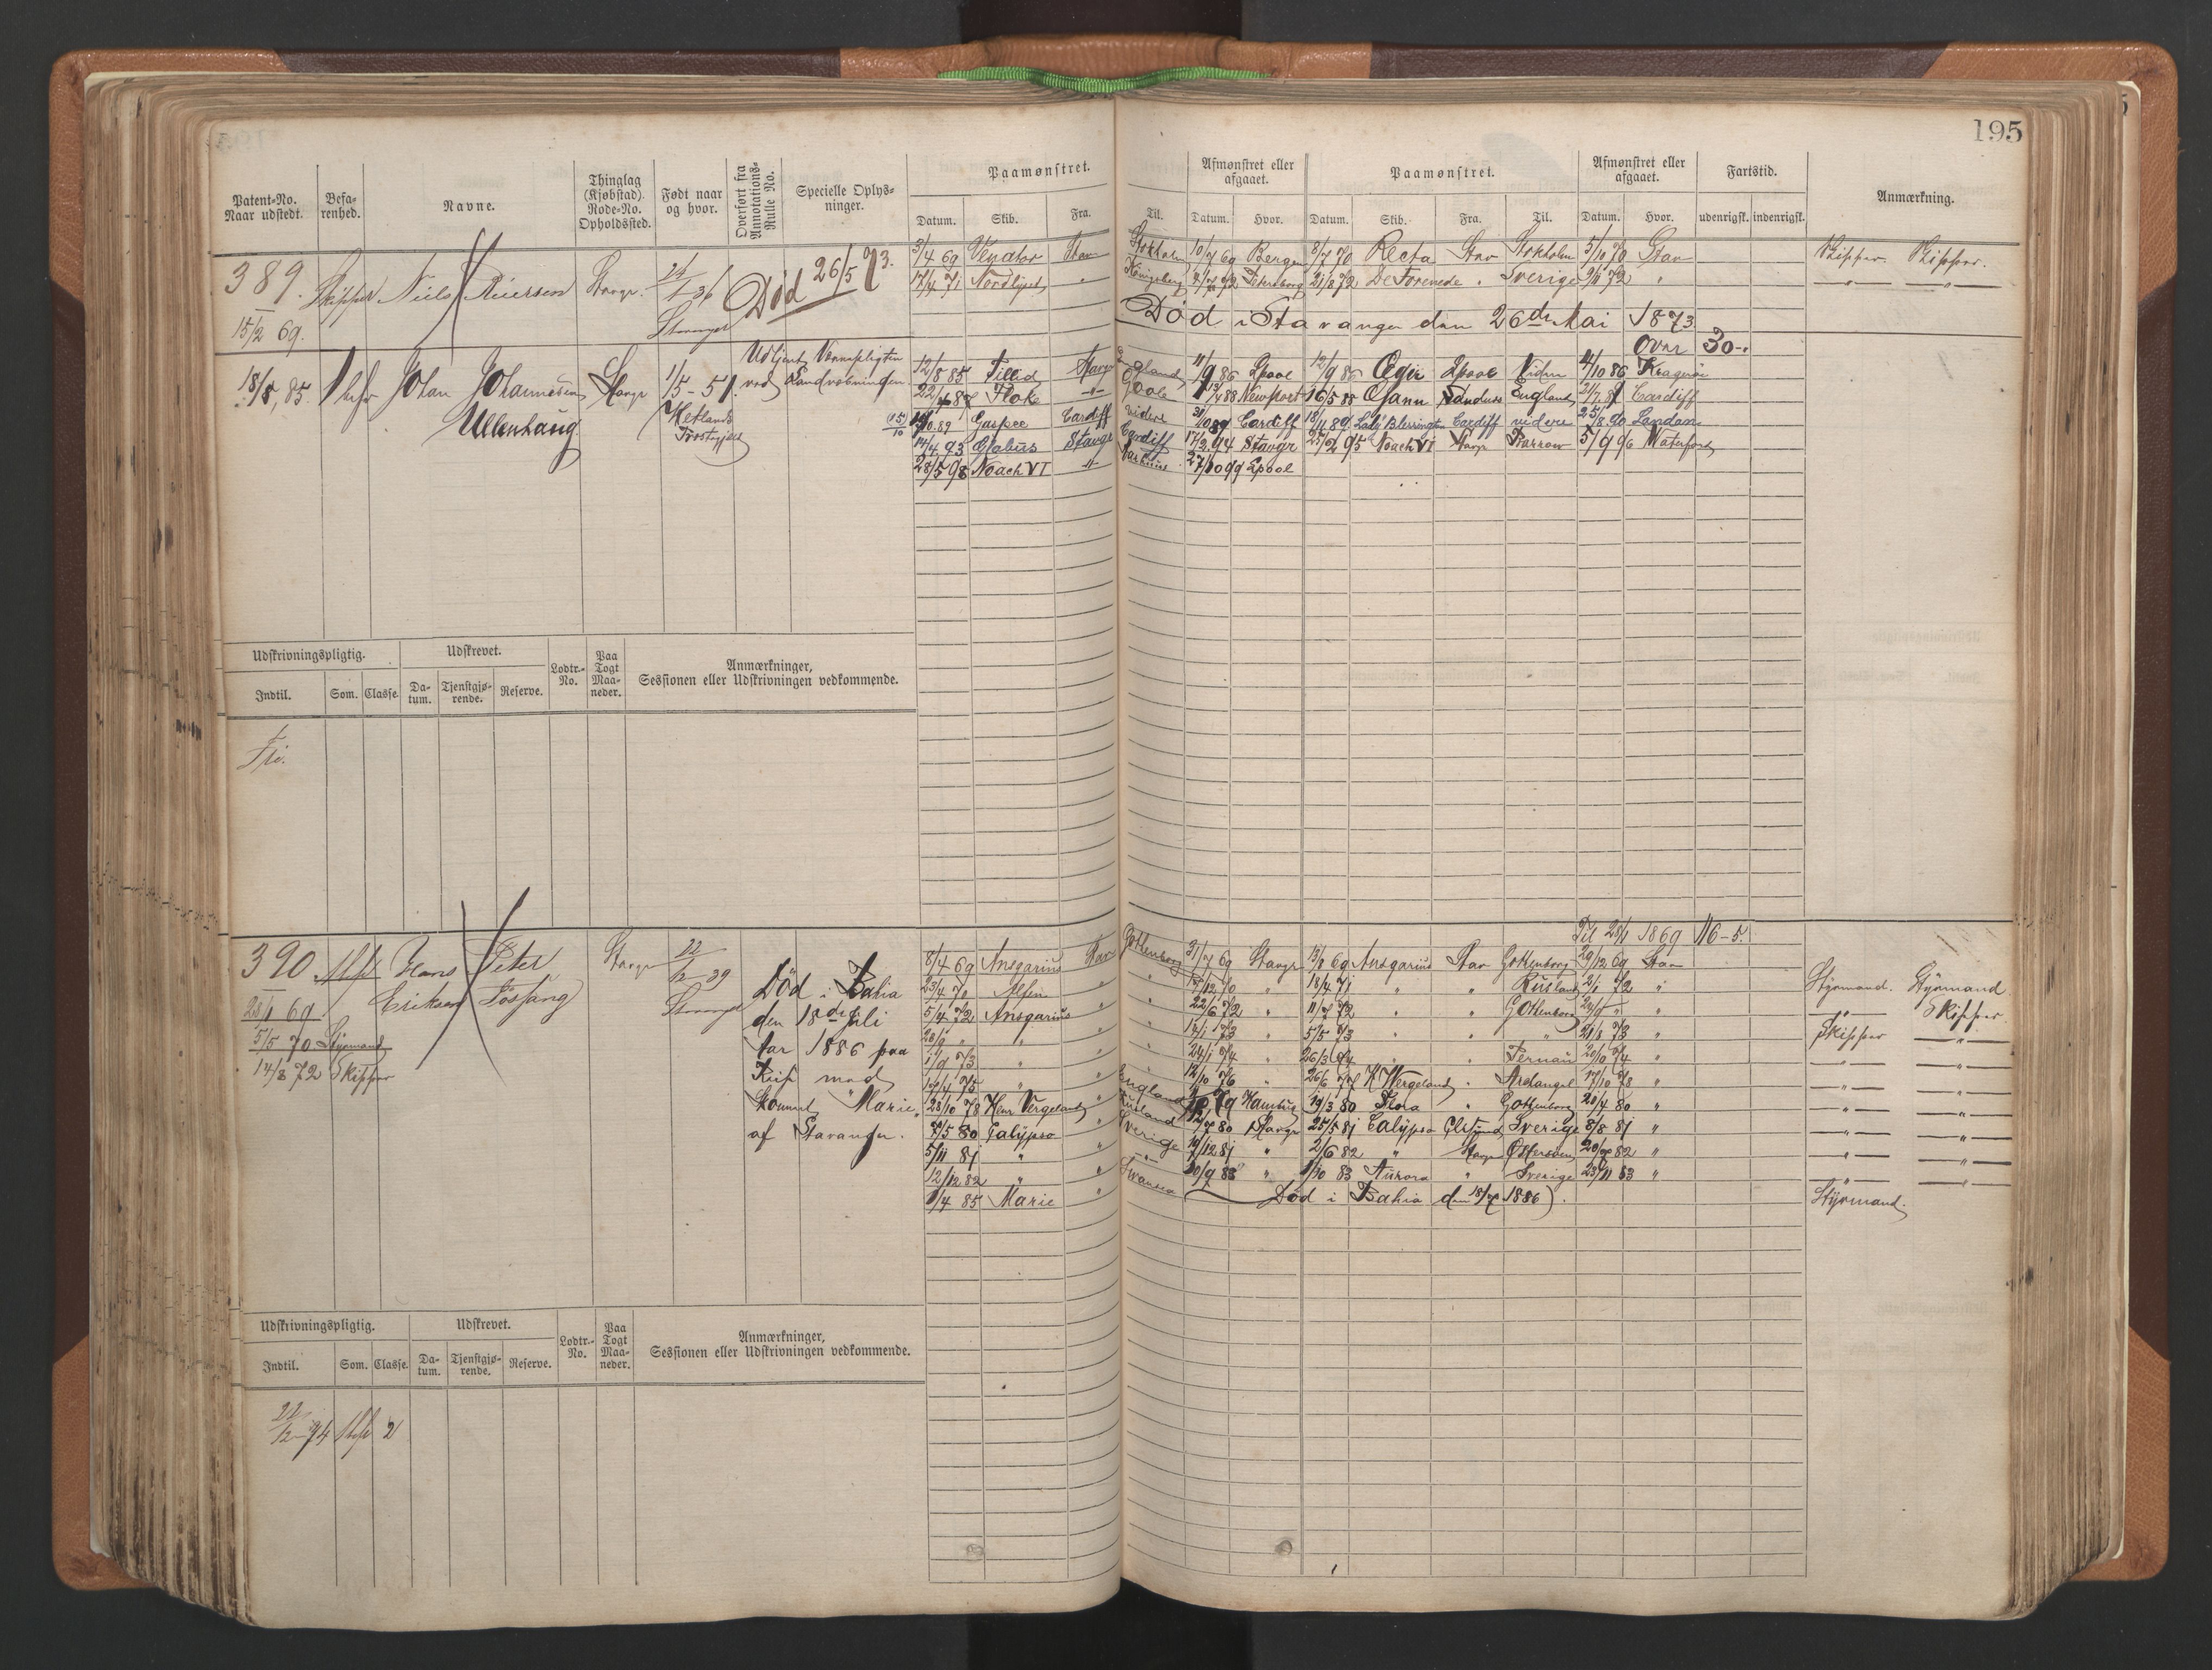 195
Patent-No. Naar udstedt.
Befarenhed.
Navne.
Thinglag (Kjøbstad). Rode-No. Opholdssted.
Født naar og hvor.
Overført fra Annotations-Rulle No.
Specielle Oplysninger.
Paamønstret.
Datum. Skib. Fra. Til.
Afmønstret eller afgaaet.
Datum. Hvor.
Paamønstret.
Datum. Skib. Fra. Til.
Afmønstret eller afgaaet.
Datum. Hvor.
Fartstid.
udenrigsk. indenrigsk.
Anmærkning.
389. Skipper Niels Stavgr.
15/2 69. Stavanger
Død 26/5 73.
3/4 69 Stav Stokholm 10/7 69 Bergen 8/7 70 Recta Stav Stokholm 5/10 70 Stav Skipper. Skipper.
17/4 71 Nordlyset " Königsberg Petersborg 21/8 72 De Forenede " Sverige 9/11 72 "
Død i Stavanger den 26de Mai 1873
over 30-.
18/8, 85. Johan Johannesen Stavgr 1/5-51.
Ullenhaug Hetland
Udtjent Værnepligten
ved Landværbningen
12/8 85 Stavgr England 11/9 86 Lpool 12/9 86 Ægir Lpool Viden 4/10 86 Kragerø
22/4 87 Floke Poole 13/4 88 Newport 16/5 88 England Cardiff
10.89 Gaspee Cardiff videre Cardiff 18/11 89 Lady Blessington Cardiff videre 25/8 90 London
14/4 93 Stavgr Cardiff 17/2 94 Stavgr 25/2 95 Noach VI Stavgr 5/9 96 Waterford
28/5 98 Noach VI 27/10 99 Lpool
Udskrivningspligtig.
Indtil. Som. Classe.
Udskrevet.
Datum. Tjenstgjørende. Reserve.
Lodtr.-No.
Paa Togt Maaneder.
Anmærkninger, Sessionen eller Udskrivningen vedkommende.
Fri.
Til 28/1 1869 116-5.
390 Hans Peter Stavgr 22/2-39
28/1 69 Eriksen Stavanger
5/5 70 Styrmand
14/3 72 Skipper
Død i Bahia
den 18de Juli
1886 paa
Reise med
Skonnert "Marie"
af Stavanger.
8/4 69 Ansgarius Stav Gothenborg 31/7 69 Stavgr 13/8 69 Ansgarius Stav Gothenborg 29/12 69 Stav
23/4 70 " " 18/4 71 " " Rusland 2/1 72 " Styrmand. Styrmand
5/4 72 Ansgarius " " 22/6 72 " 11/7 72 " " Gothenborg " Skipper
14/1 73 " 5/5 73 " " " 21/8 73 " Skipper
1/9 73 " " 24/1 74 " 26/3 74 " " Pernau 20/10 74 "
14/4 75 " " 12/10 76 " 26/6 77 H Wergeland " Archangel 17/10 78 "
28/10 78 Henr Vergeland " England Hamburg 19/3 80 Flora " Gothenborg 20/4 80 "
5/5 80 Calypso " Rusland 80 Stavgr 25/5 81 Calypso Sverige 8/8 81 "
5/11 81 " " Sverige 19/12 81 " 2/6 82 " Stavgr Østersøen 82 "
12/12 82 " " 10/9 83 " 1/10 83 Aurora " Sverige 23/11 83 "
1/4 85 Marie " Swansea Død i Bahia den 18/7 1886). Styrmand.
Udskrivningspligtig.
Indtil. Som. Classe.
Udskrevet.
Datum. Tjenstgjørende. Reserve.
Lodtr.-No.
Paa Togt Maaneder.
Anmærkninger, Sessionen eller Udskrivningen vedkommende.
22/2 74 2